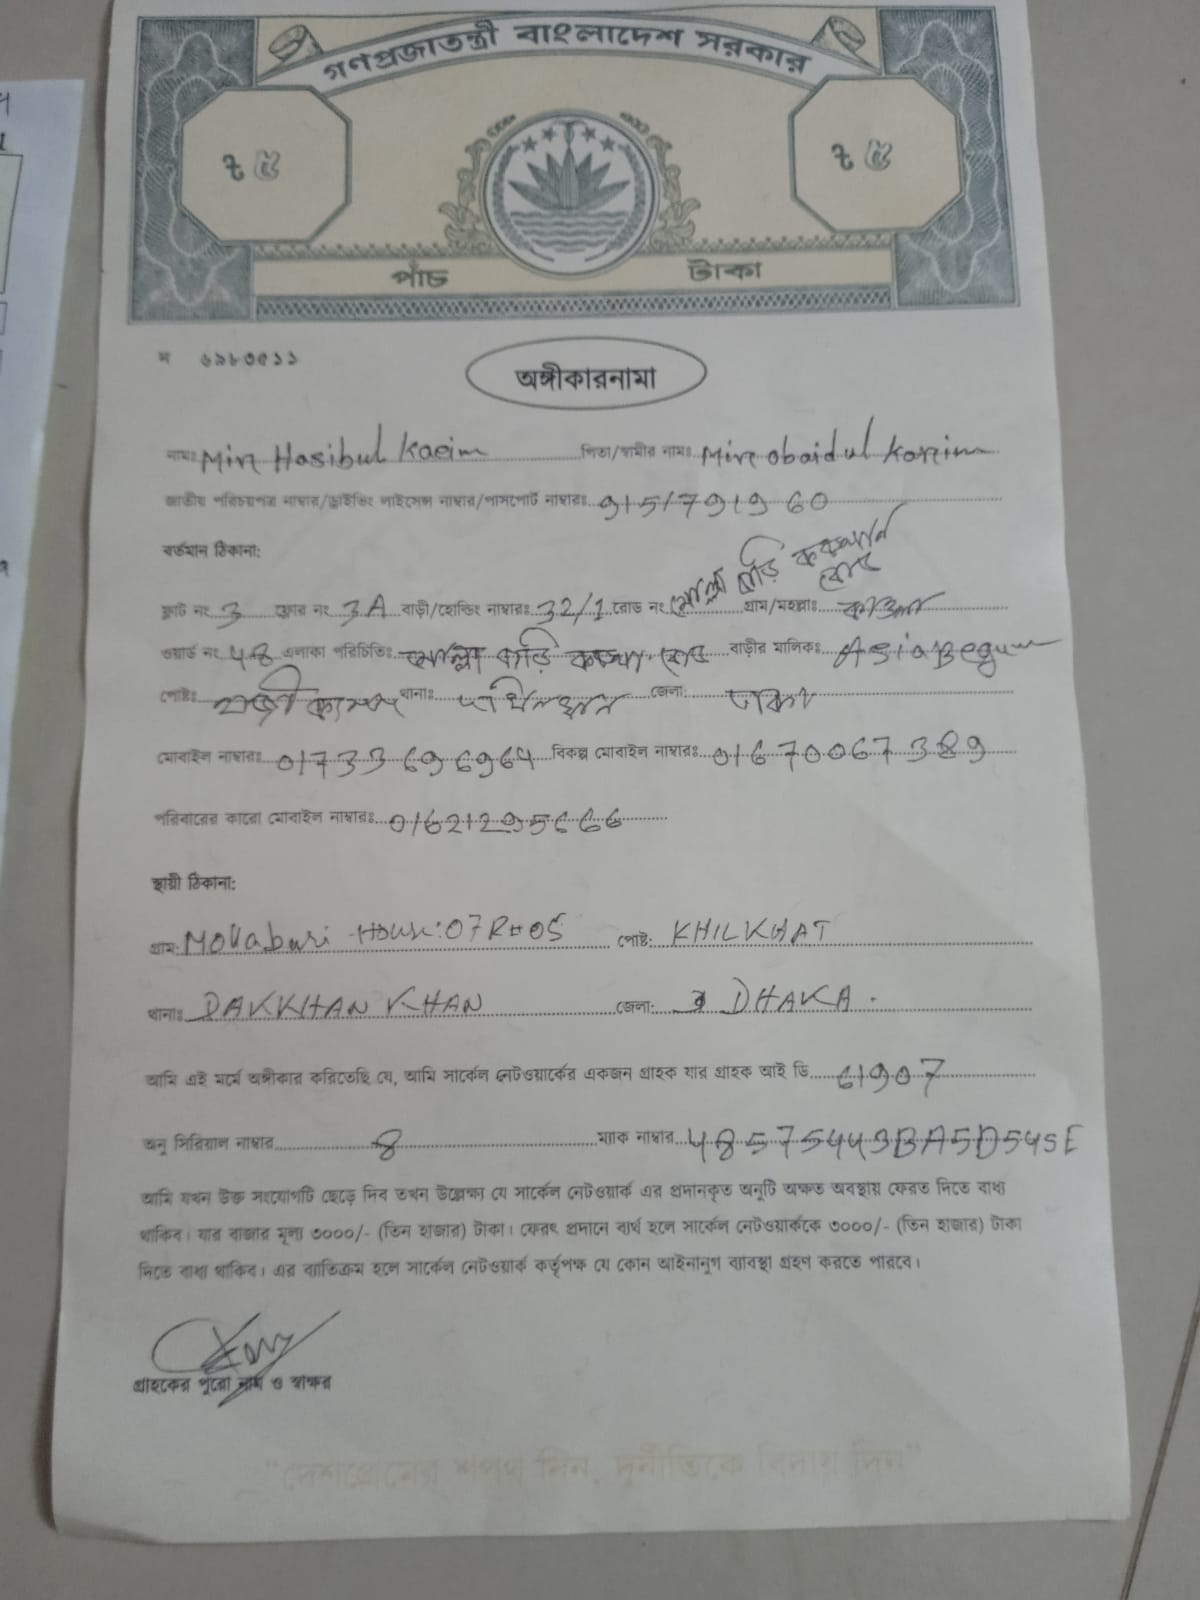 গণপ্রজাতন্ত্রী বাংলাদেশ সরকার
৳ ৫ ৳ ৫
পাঁচ টাকা
ম ৬৯৮৩৫১১
অঙ্গীকারনামা
নামঃ Mir Hasibul Karim পিতা/স্বামীর নামঃ Mir obaidul Karim
জাতীয় পরিচয়পত্র নাম্বার/ড্রাইভিং লাইসেন্স নাম্বার/পাসপোর্ট নাম্বারঃ 9157919 60
বর্তমান ঠিকানা:
ফ্লাট নং 3 ফ্লোর নং 3A বাড়ী/হোল্ডিং নাম্বারঃ 32/1 রোড নং মোল্লা বাড়ি রোড গ্রাম/মহল্লাঃ
ওয়ার্ড নং 48 এলাকা পরিচিতিঃ মোল্লা বাড়ি রোড বাড়ীর মালিকঃ Asia Begum
পোষ্টঃ থানাঃ দক্ষিনখান জেলা: ঢাকা
মোবাইল নাম্বারঃ 01733696964 বিকল্প মোবাইল নাম্বারঃ 01670067389
পরিবারের কারো মোবাইল নাম্বারঃ 01621295666
স্থায়ী ঠিকানা:
গ্রাম: Mollabari House: 07 R# 05 পোষ্ট: KHILKHAT
থানাঃ DAKKHAN KHAN জেলা: DHAKA.
আমি এই মর্মে অঙ্গীকার করিতেছি যে, আমি সার্কেল নেটওয়ার্কের একজন গ্রাহক যার গ্রাহক আই ডি 61907
অনু সিরিয়াল নাম্বার 8 ম্যাক নাম্বার 48575443BA5D545E
আমি যখন উক্ত সংযোগটি ছেড়ে দিব তখন উল্লেক্ষ্য যে সার্কেল নেটওয়ার্ক এর প্রদানকৃত অনুটি অক্ষত অবস্থায় ফেরত দিতে বাধ্য
থাকিব। যার বাজার মূল্য ৩০০০/- (তিন হাজার) টাকা। ফেরৎ প্রদানে ব্যর্থ হলে সার্কেল নেটওয়ার্ককে ৩০০০/- (তিন হাজার) টাকা
দিতে বাধ্য থাকিব। এর ব্যতিক্রম হলে সার্কেল নেটওয়ার্ক কর্তৃপক্ষ যে কোন আইনানুগ ব্যাবস্থা গ্রহণ করতে পারবে।
গ্রাহকের পুরো নাম ও স্বাক্ষর
"দেশপ্রেমের শপথ নিন, দুর্নীতিকে বিদায় দিন"